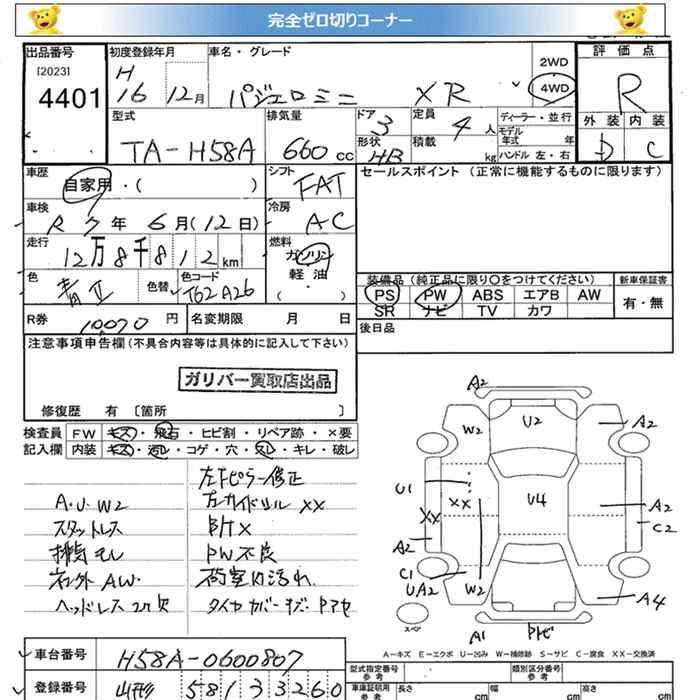 完全ゼロ切りコーナー
出品番号 初度登録年月 車名・グレード 2WD 評価点
[2023] H
4401 16 12月 パジェロミニ XR 4WD R
型式 排気量 ドア 定員 ディーラー・並行 外装 内装
TA-H58A 660cc 3 4人 モデル年式 年 D C
形状 HB 積載 kg ハンドル 左・右
車歴 シフト セールスポイント (正常に機能するものに限ります)
自家用・( ) FAT
車検 冷房
R 7年 6月(12日) AC
走行 燃料
12万8千812km ガソリン
軽油
( ・ )
色 色替 色コード 装備品 (純正品に限り○をつけてください) 新車保証書
青II T62 A26 PS PW ABS エアB AW 有・無
SR ナビ TV カワ
R券 10070円 名変期限 月 日 後日品
注意事項申告欄(不具合内容等は具体的に記入して下さい)
ガリバー買取店出品
修復歴 有 〔箇所 〕
検査員 FW キズ・飛石・ヒビ割・リペア跡・×要
記入欄 内装 キズ・汚レ・コゲ・穴・スレ・キレ・破レ
左Fピラー修正
A・U・W2
XX
スタットレス
排気モレ PW不良
ネジ外 AW・ 荷室内汚れ
ヘッドレス2ケ欠 タイヤカバーキズ・
A2
W2 U2 A2
U1 XX U4 A2
XX C2
A2
C1
UA2 W2 A4
スペア A1
A-キズ E-エクボ U-凹み W-補修跡 S-サビ C-腐食 XX-交換済
車台番号 H58A-0600807
型式指定番号 類別区分番号
登録番号 山形 581 33260
車庫証明用参考 長さ cm 幅 cm 高さ cm